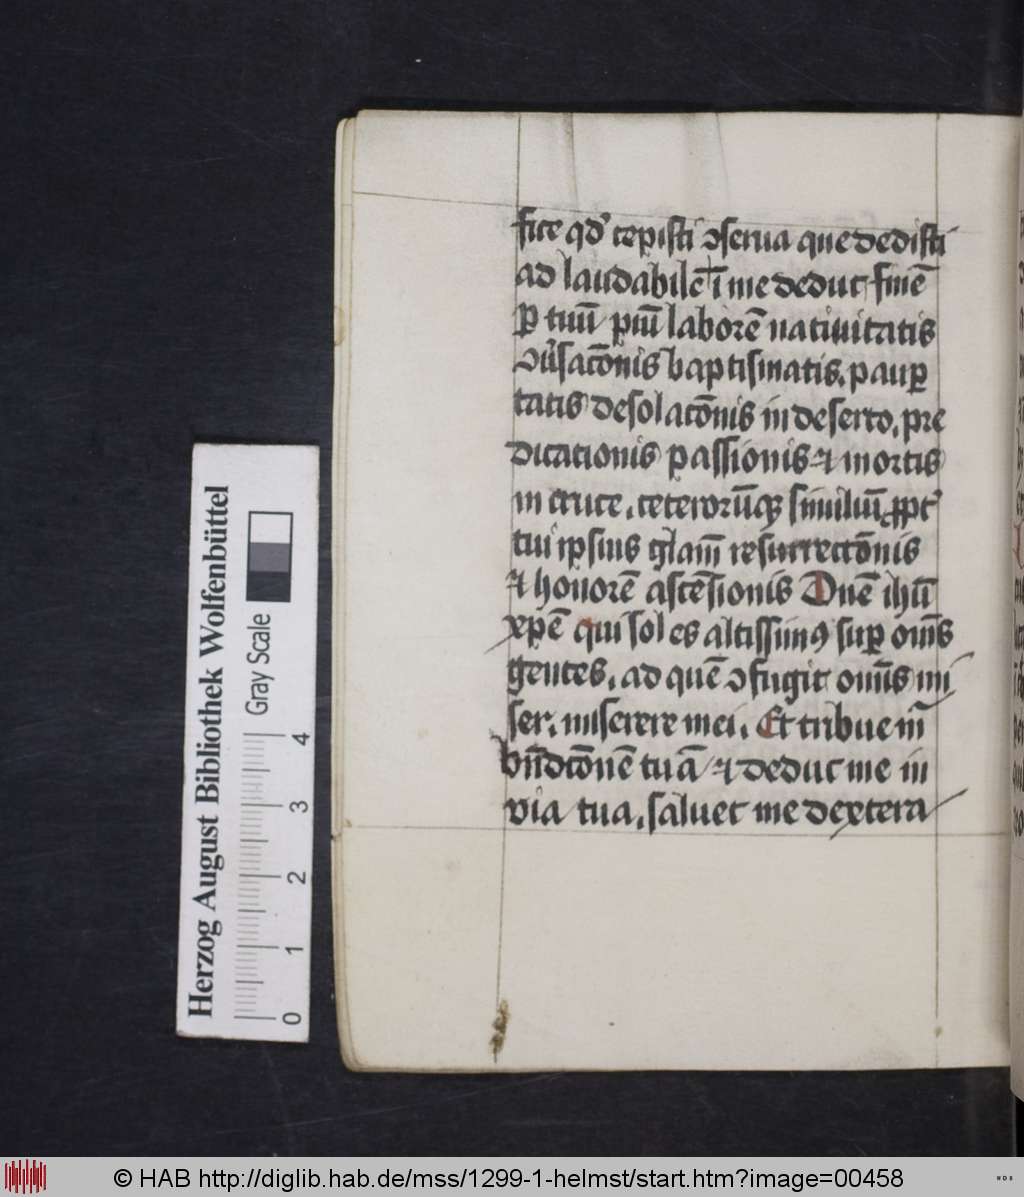 fice qd' cepisti ↄserua que dedisti
ad laudabilē ī me deduc finē
ꝑ tuū piū laborē natiuitatis
ↄu'sacōnis baptismatis. paup
tatis desolacōnis in deserto. pre
dicationis passionis ⁊ mortis
in cruce. ceterorūqꝫ similiū ꝓpt'
tui ipsius glam̄ resurrectōnis
⁊ honorē ascēsionis Dnē ihū
xp̄e qui sol es altissimꝯ sup om̄s
gentes. ad quē ↄfugit om̄is mi
ser. miserere mei. Et tribue m̄
bn̄dcōnē tuā ⁊ deduc me in
via tua. saluet me dextera
Herzog August Bibliothek Wolfenbüttel
Gray Scale
0 1 2 3 4
© HAB http://diglib.hab.de/mss/1299-1-helmst/start.htm?image=00458